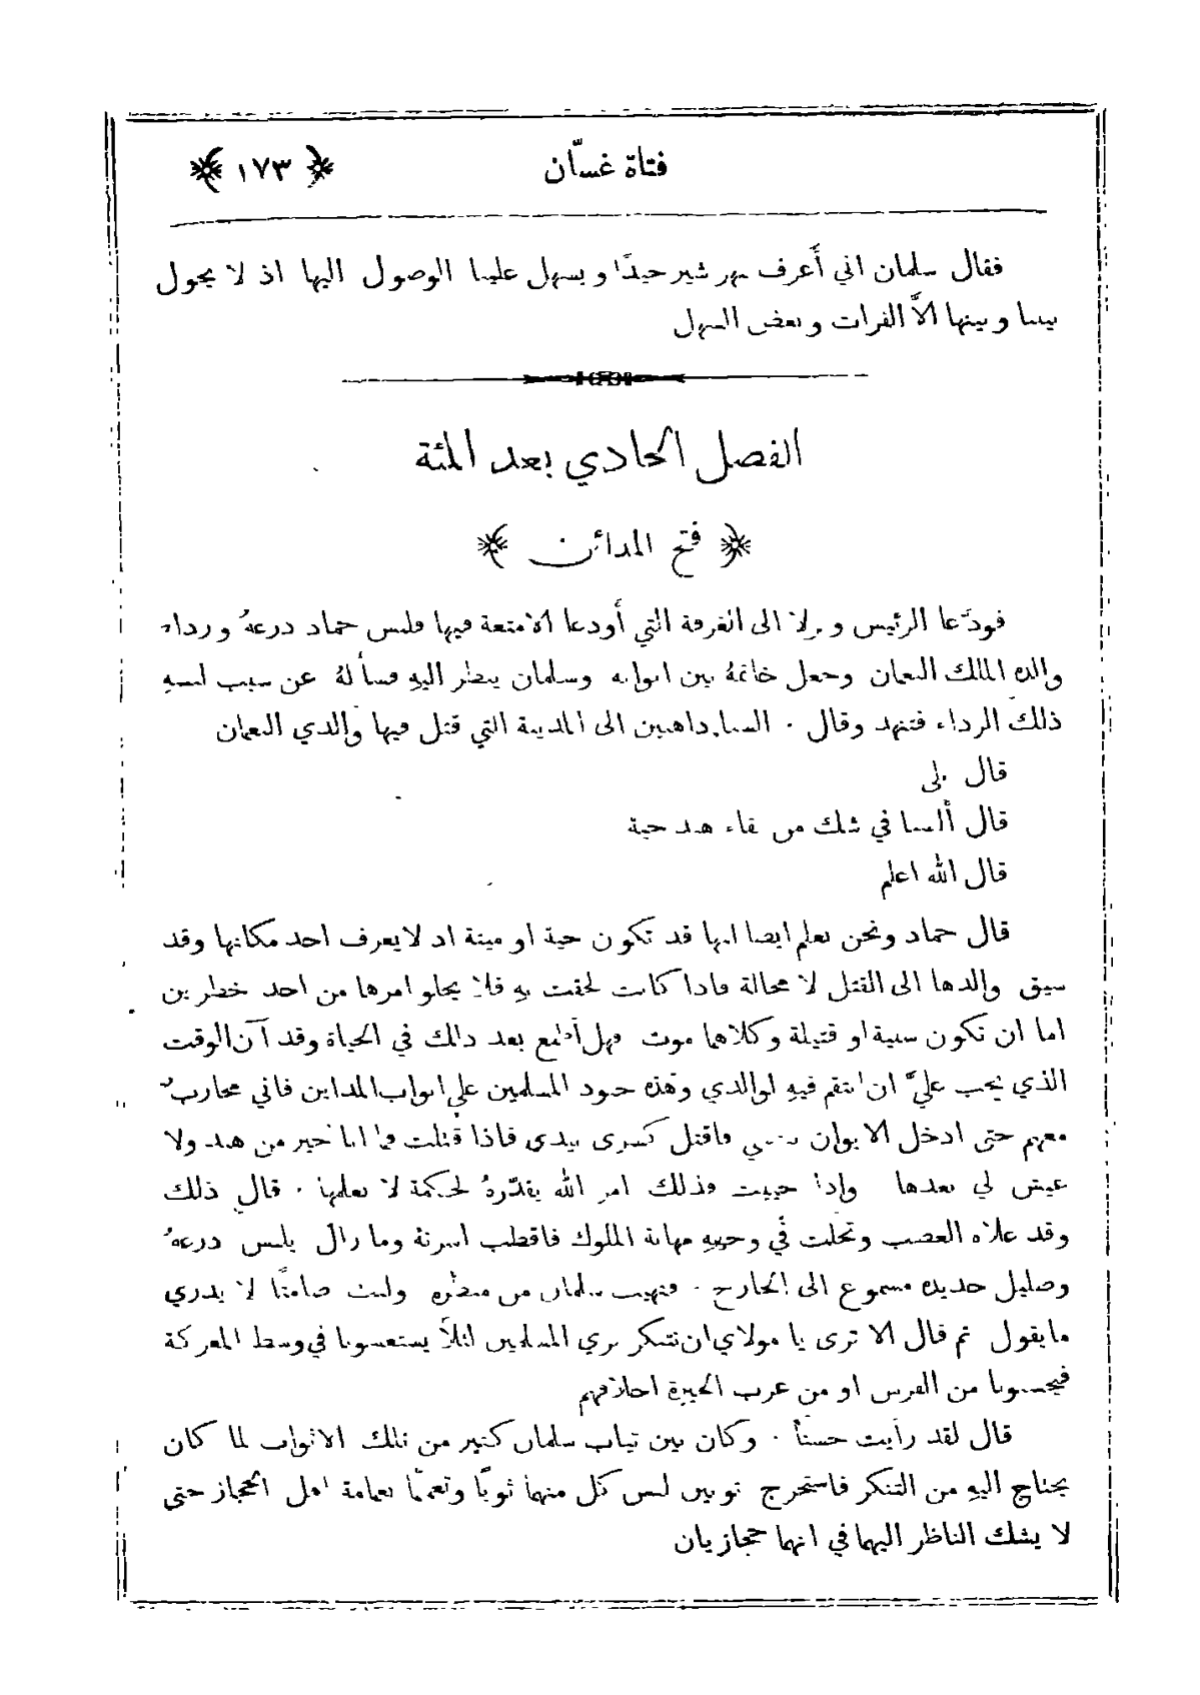 فتاة غسّان ﴿ ١٧٣ ﴾
فقال سلمان اني أعرف بهر شير جيدًا ويسهل علينا الوصول اليها اذ لا يحول
بيننا وبينها الاَّ الفرات وبعض السهل
الفصل الحادي بعد المئة
﴿ فتح المدائن ﴾
فودَّعا الرئيس ونزلا الى الغرفة التي أودعا الامتعة فيها فلبس حماد درعهُ ورداء
والده الملك النعمان وجعل خاتمهُ بين اثوابه وسلمان ينظر اليهِ فسألهُ عن سبب لبسهِ
ذلك الرداء فتنهد وقال . السنا ذاهبين الى المدينة التي قتل فيها والدي النعمان
قال بلى
قال ألسنا في شك من بقاء هند حية
قال الله اعلم
قال حماد ونحن نعلم ايضا انها قد تكون حية او ميتة اذ لا يعرف احد مكانها وقد
سيق والدها الى القتل لا محالة فاذا كانت لحقت بهِ فلا يخلو امرها من احد خطرين
اما ان تكون سبية او قتيلة وكلاهما موت فهل أطمع بعد ذلك في الحياة وقد آن الوقت
الذي يجب عليَّ ان انتقم فيهِ لوالدي وهذه جنود المسلمين على ابواب المداين فاني محاربٌ
معهم حتى ادخل الايوان بنفسي فاقتل كسرى بيدي فاذا قُتلت فما انا خير من هند ولا
عيش لي بعدها واذا حييت فذلك امر الله يقدّرهُ لحكمة لا نعلمها . قال ذلك
وقد علاه الغضب وتجلت في وجههِ مهابة الملوك فاقطب اسرتهُ وما زال يلبس درعهُ
وصليل حديده مسموع الى الخارج . فتهيب سلمان من منظره ولبث صامتًا لا يدري
ما يقول ثم قال الا ترى يا مولاي ان نتنكر بزي المسلمين لئلاَّ يستغشونا في وسط المعركة
فيحسبونا من الفرس او من عرب الحيرة احلافهم
قال لقد رأيت حسنًا . وكان بين ثياب سلمان كثير من تلك الاثواب لما كان
يحتاج اليهِ من التنكر فاستخرج ثوبين لبس كل منهما ثوبًا وتعمّما بعمامة اهل الحجاز حتى
لا يشك الناظر اليهما في انهما حجازيان